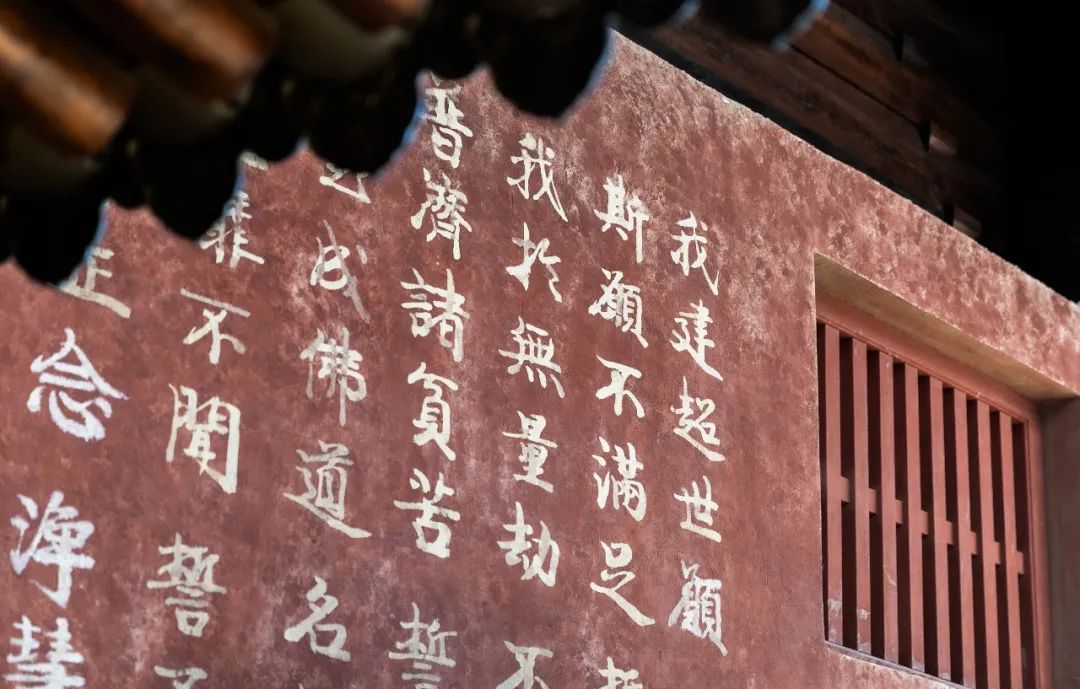 我建超世願
斯願不滿足誓
我於無量劫不
普濟諸負苦誓
成佛道名
靡不聞誓不
正念淨慧